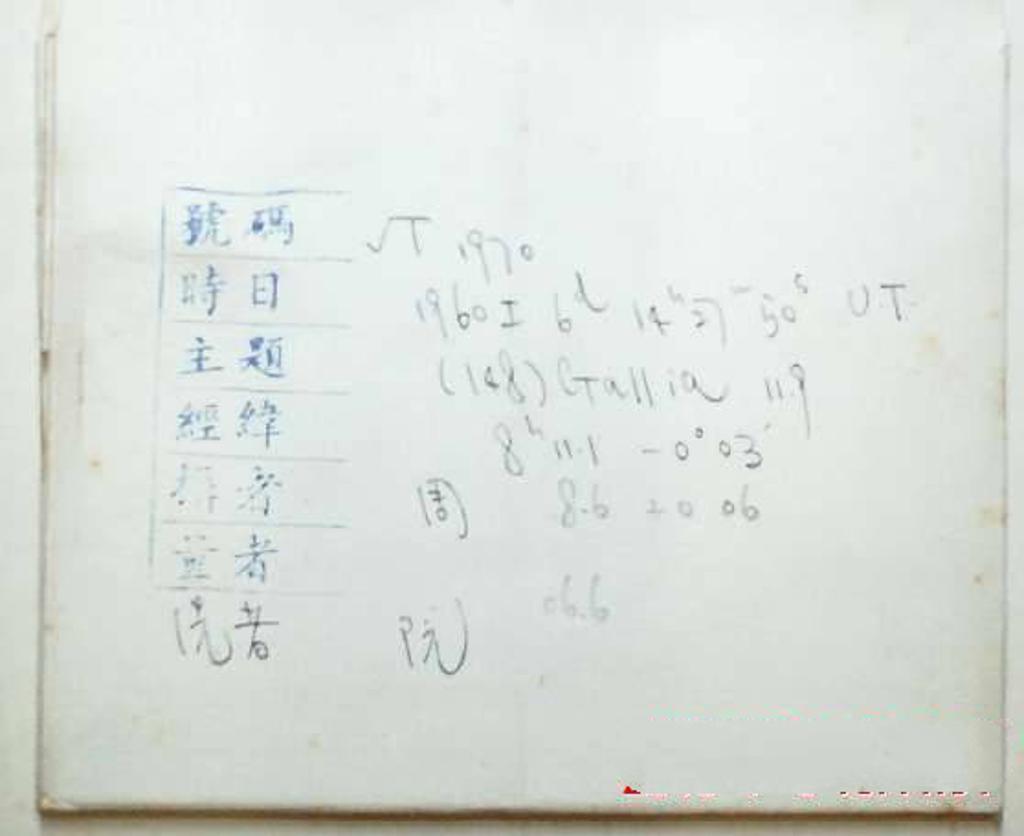 號碼 √T 1970
時日 1960 I 6d 14h 27m 50s U T.
主題 (148) Gallia 11.9
經緯 8h 11.1 -0°03'
者 周 8.6 +0 06
者 06.6
者 阮